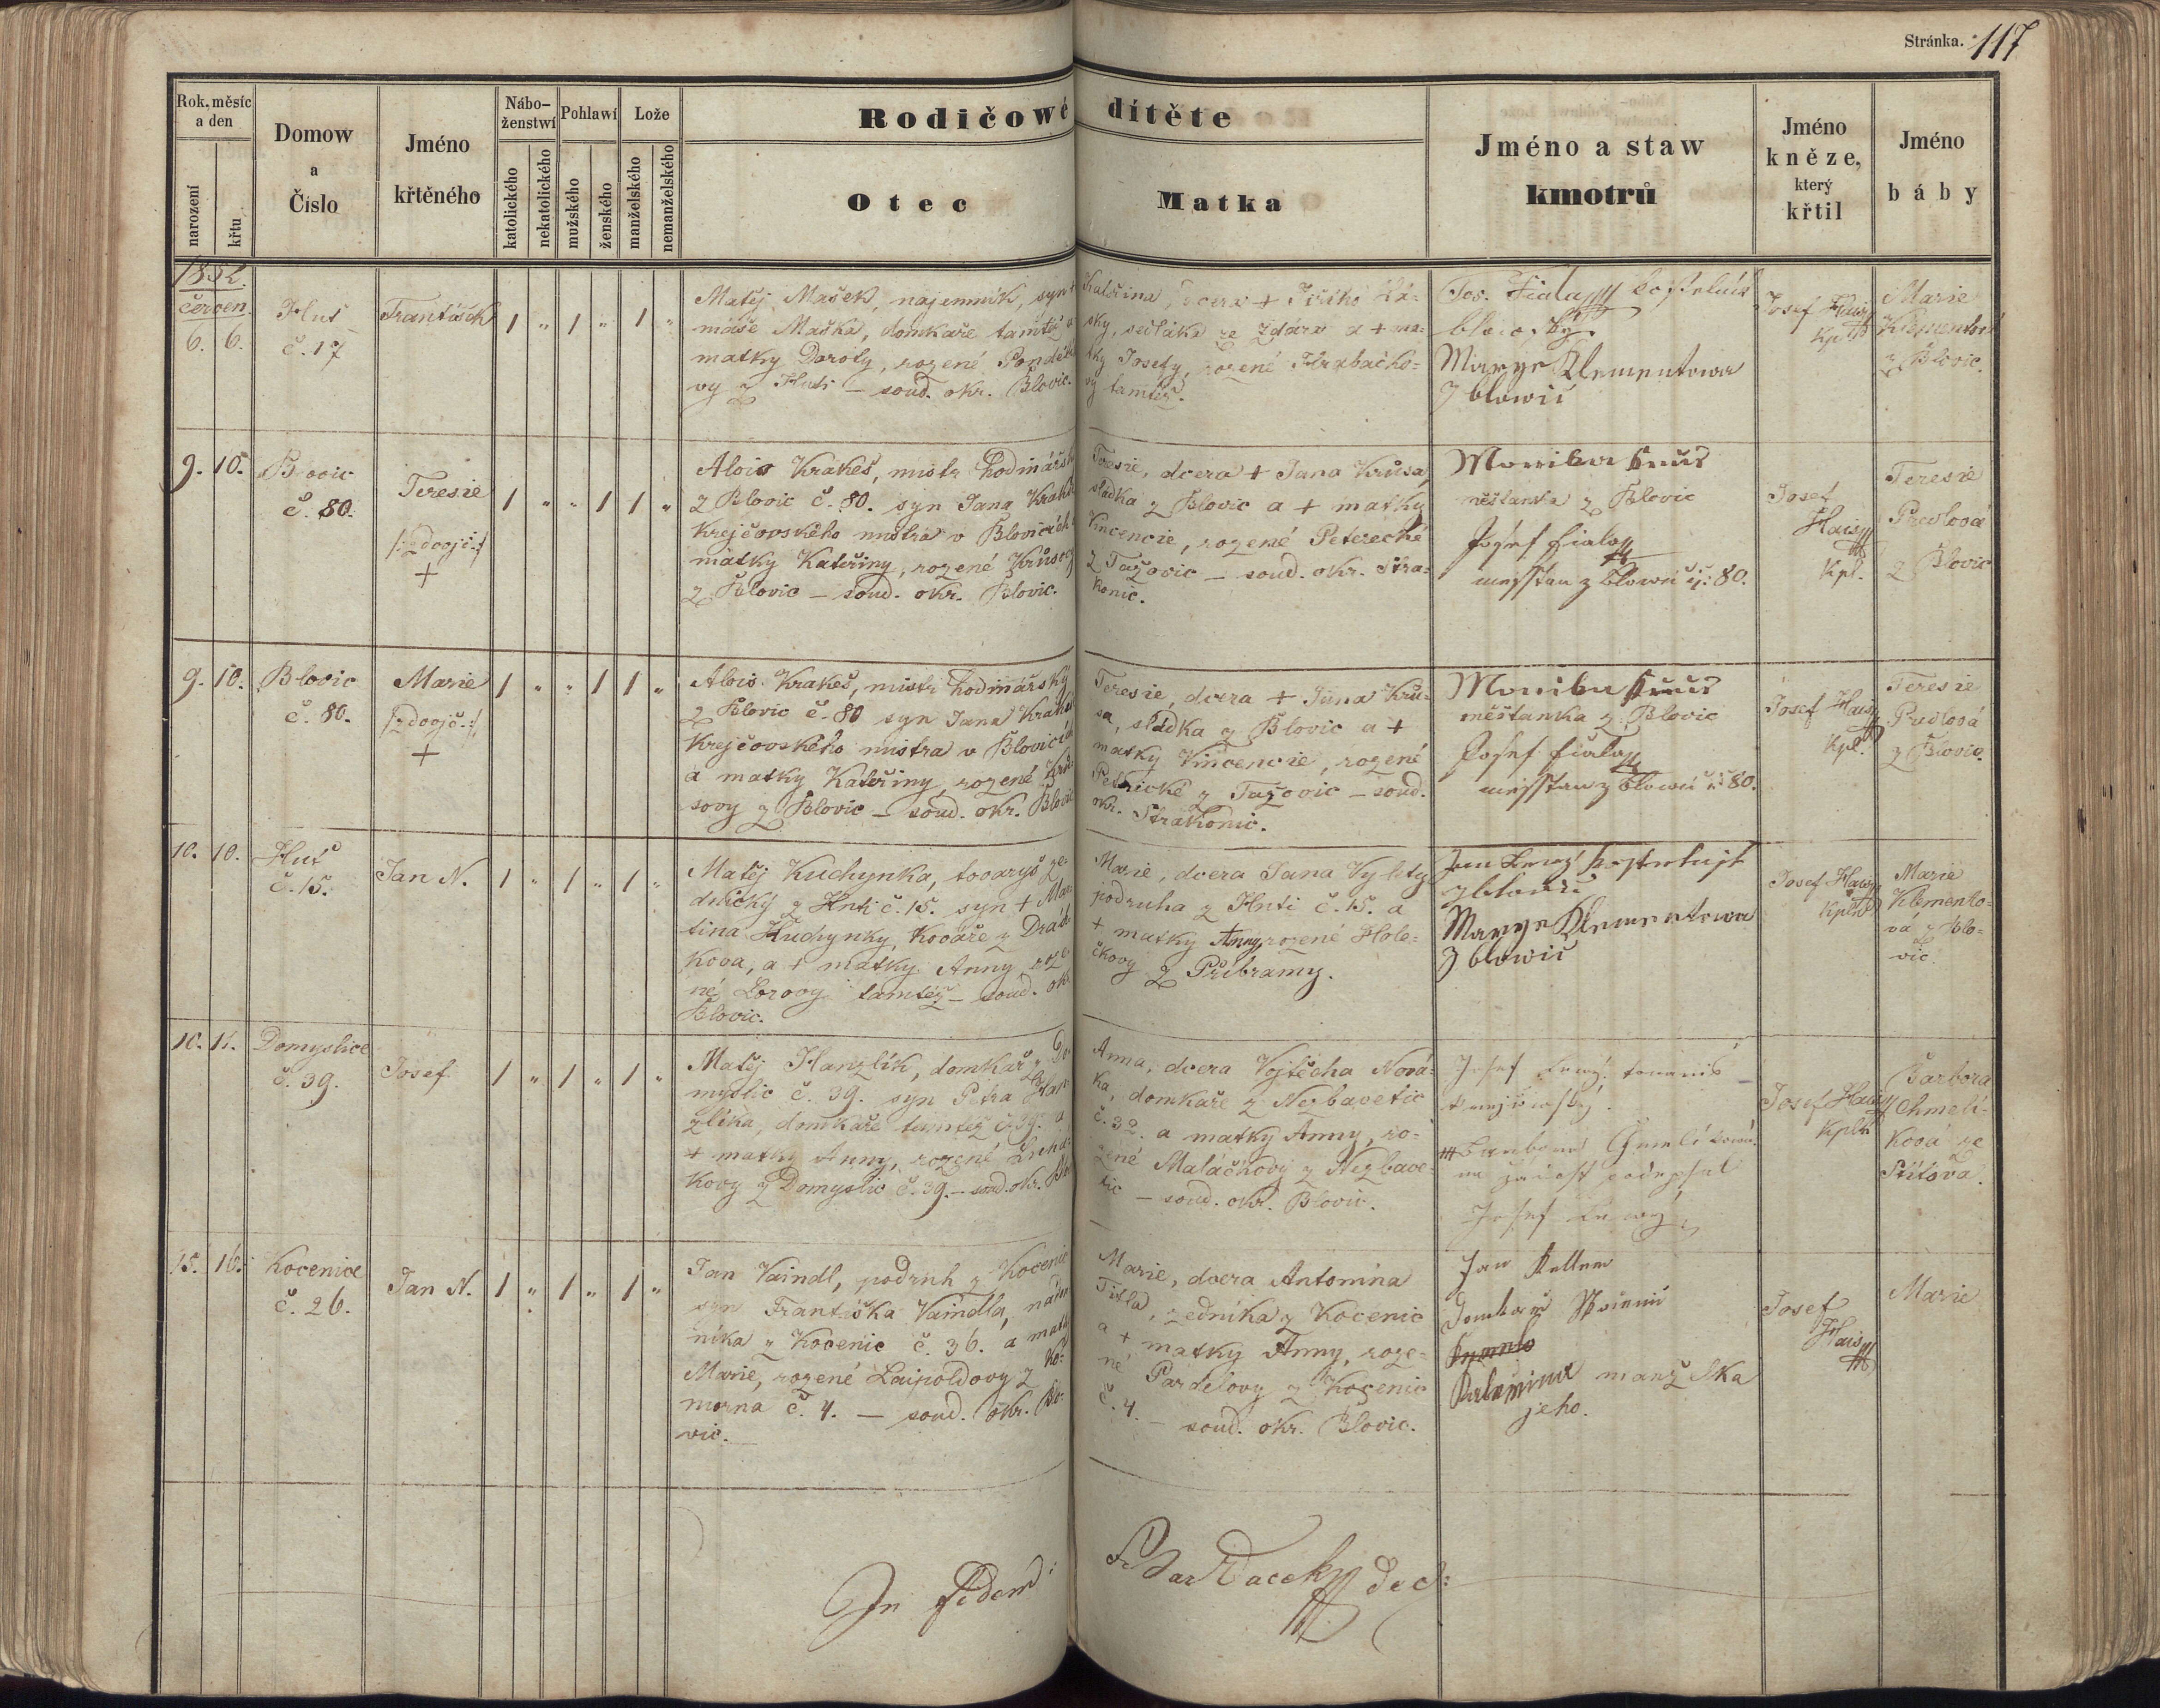 Stránka. 117
Rok, měsíc
a den
narození
křtu
Domow
a
Číslo
Jméno
křtěného
Nábo-
ženstwí
katolického
nekatolického
Pohlawí
mužského
ženského
Lože
manželského
nemanželského
Rodičowé dítěte
Otec
Matka
Jméno a staw
kmotrů
Jméno
kněze,
který
křtil
Jméno
báby
1882.
červen
6. 6.
Huť
č. 17
František
1 " 1 " 1 "
Matěj Mašek, najemník, syn +
máše Maška, domkaře tamtéž a
matky Doroty, rozené
vy z Huti – soud. okr. Blovic.
Kateřina, dcera + Jiřího
sky, sedláka ze Zdáru a + ma-
tky Josefy, rozené Hrabačko-
vy tamtéž.
Jos. Fiala kostelník
Marye Klementowa
z blowic
Josef Hais
kpl.
Marie
Klementová
z Blovic.
9. 10.
Blovic
č. 80.
Teresie
/:z dvojč:/
+
1 " " 1 1 "
Alois Krakeš, mistr hodinářský
z Blovic č. 80. syn Jana Krakeš
Krejčovského mistra v Blovicích
matky Kateřiny, rozené Krůsovy
z Blovic – soud. okr. Blovic.
Teresie, dcera + Jana Krůsa,
sládka z Blovic a + matky
Vincencie, rozené Peterecké
z Tažovic – soud. okr. Stra-
konic.
měšťanka z Blovic
Josef fiala
messtan z blowic č: 80.
Josef
Hais
Kpl.
Teresie
Pudlová
z Blovic
9. 10.
Blovic
č. 80.
Marie
/:z dvojč:/
+
1 " " 1 1 "
Alois Krakeš, mistr hodinářský
z Blovic č. 80 syn Jana Krakeš
Krejčovského mistra v Blovicích
a matky Kateřiny, rozené Krů-
sovy z Blovic – soud. okr. Blovic
Teresie, dcera + Jana Krů-
sa, sládka z Blovic a +
matky Vincencie, rozené
Petrické z Tažovic – soud.
okr. Strakonic.
měšťanka z Blovic
Josef fiala
messtan z blowic č. 80.
Josef Hais
Kpl.
Teresie
Pudlová
z Blovic.
10. 10.
Huť
č. 15.
Jan N.
1 " 1 " 1 "
Matěj Kuchynka, tovaryš ze-
dnický z Huti č. 15. syn + Mar-
tina Kuchynky, Kováře z Dráh-
kova, a + matky Anny roze-
né Lorovy tamtéž – soud. okr
Blovic.
Marie, dcera Jana Vylety
podruha z Huti č. 15. a
+ matky Anny, rozené Hole-
čkovy z Příbramy.
Marye Klementowa
z blowic
Josef Hais
kpln
Marie
Klemento-
vá z Blo-
vic.
10. 11.
Domyslice
č. 39.
Josef
1 " 1 " 1 "
Matěj Hanzlík, domkař z Do-
myslic č. 39. syn Petra Han-
zlíka, domkaře tamtéž č. 39. a
+ matky Anny, rozené
Kovy z Domyslic č. 39. – soud. okr. Blo
Anna, dcera Vojtěcha Nová-
ka, domkaře z Nezbavetic
č. 32. a matky Anny, ro-
zené Maláčkovy z Nezbave-
tic – soud. okr. Blovic.
na žádost podepsal
Josef Hais
kpln
Barbora
Chmelí-
ková ze
Štítova.
15. 16.
Kocenice
č. 26.
Jan N.
1 " 1 " 1 "
Jan Vaindl, podruh z Kocenic
syn Františka Vaindla, náden
níka z Kocenic č. 36. a matky
Marie, rozené Laipoldovy z Ko-
morna č. 4. – soud. okr. Blo-
vic.
Marie, dcera Antonína
Titla, zedníka z Kocenic
a + matky Anny, roze-
né Pardelovy z Kocenic
č. 4. – soud. okr. Blovic.
manželka
jeho.
Josef
Hais
Marie
In fidem